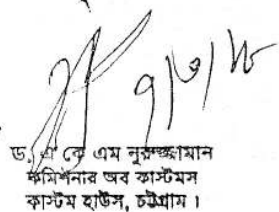 ৭/৩/১৮
ড. এ কে এম নুরুজ্জামান
কমিশনার অব কাস্টমস
কাস্টম হাউস, চট্টগ্রাম ।